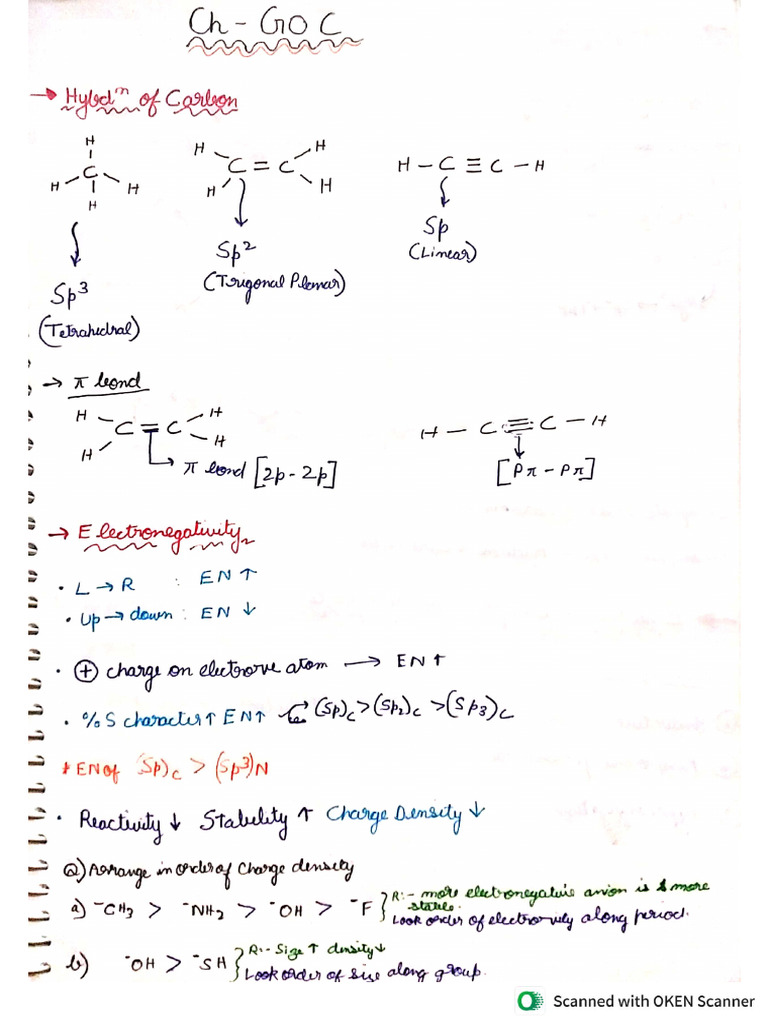 Ch - GOC
→ Hybdⁿ of Carbon
H
H - C - H
H
H H
C = C
H H
H - C ≡ C - H
Sp³
(Tetrahedral)
Sp²
(Trigonal Planar)
Sp
(Linear)
→ π bond
H H
C = C
H H
π bond [2p - 2p]
H - C ≡ C - H
[Pπ - Pπ]
→ Electronegativity
• L → R : EN ↑
• Up → down : EN ↓
• ⊕ charge on electrove atom → EN ↑
• % S character ↑ EN ↑ (Sp)c > (Sp2)c > (Sp3)c
* EN of (Sp)c > (Sp³)N
• Reactivity ↓ Stability ↑ Charge Density ↓
Q) Arrange in order of Charge density
a) ⁻CH₃ > ⁻NH₂ > ⁻OH > ⁻F } R:- more electronegative anion is more
stable.
Look order of electronvely along period.
b) ⁻OH > ⁻SH } R:- Size ↑ density ↓
Look order of size along group.
Scanned with OKEN Scanner